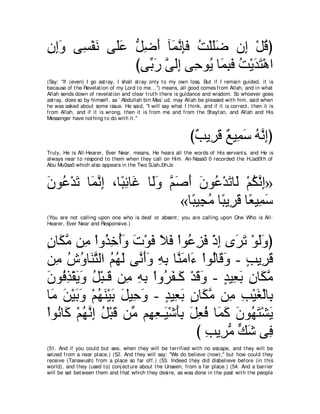 (قُلْ إِن ضَلَلْتُ فَإِنَّمَآ أَضِلُّ عَلَى نَفْسِى وَإِنِ
اهْتَدَيْتُ فَبِمَا يُوحِى إِلَىَّ رَبِّى)
(Say: "If (even) I go astray, I shall stray only to my own loss. But if I remain guided, it is because of the Revelation of my Lord to me...") means, all good comes from Allah, and in what Allah sends down of revelation and clear truth there is guidance and wisdom. So whoever goes astray, does so by himself, as `Abdullah bin Mas`ud, may Allah be pleased with him, said when he was asked about some issue. He said, "I will say what I think, and if it is correct, then it is from Allah, and if it is wrong, then it is from me and from the Shaytan, and Allah and His Messenger have nothing to do with it."
(إِنَّهُ سَمِيعٌ قَرِيبٌ)
Truly, He is All-Hearer, Ever Near. means, He hears all the words of His servants, and He is always near to respond to them when they call on Him.
«إِنَّكُمْ لَا تَدْعُونَ أَصَمَّ وَلَا غَائِبًا، إِنَّمَا تَدْعُونَ
سَمِيعًا قَرِيبًا مُجِيبًا»
(You are not calling upon one who is deaf or absent; you are calling upon One Who is All-Hearer, Ever Near and Responsive.)
(وَلَوْ تَرَى إِذْ فَزِعُواْ فَلاَ فَوْتَ وَأُخِذُواْ مِن مَّكَانٍ
قَرِيبٍ - وَقَالُواْ ءَامَنَّا بِهِ وَأَنَّى لَهُمُ التَّنَاوُشُ مِن
مَّكَانِ بَعِيدٍ - وَقَدْ كَفَرُواْ بِهِ مِن قَبْلُ وَيَقْذِفُونَ
بِالْغَيْبِ مِن مَّكَانٍ بَعِيدٍ - وَحِيلَ بَيْنَهُمْ وَبَيْنَ مَا
يَشْتَهُونَ كَمَا فُعِلَ بِأَشْيَاعِهِم مِّن قَبْلُ إِنَّهُمْ كَانُواْ
فِى شَكٍّ مُّرِيبٍ )
(51. And if you could but see, when they will be terrified with no escape, and they will be seized from a near place.) (52. And they will say: "We do believe (now);" but how could they receive (Tanawush) from a place so far off.) (53. Indeed they did disbelieve before (in this world), and they (used to) conjecture about the Unseen, from a far place.) (54. And a barrier will be set between them and that which they desire, as was done in the past with the people